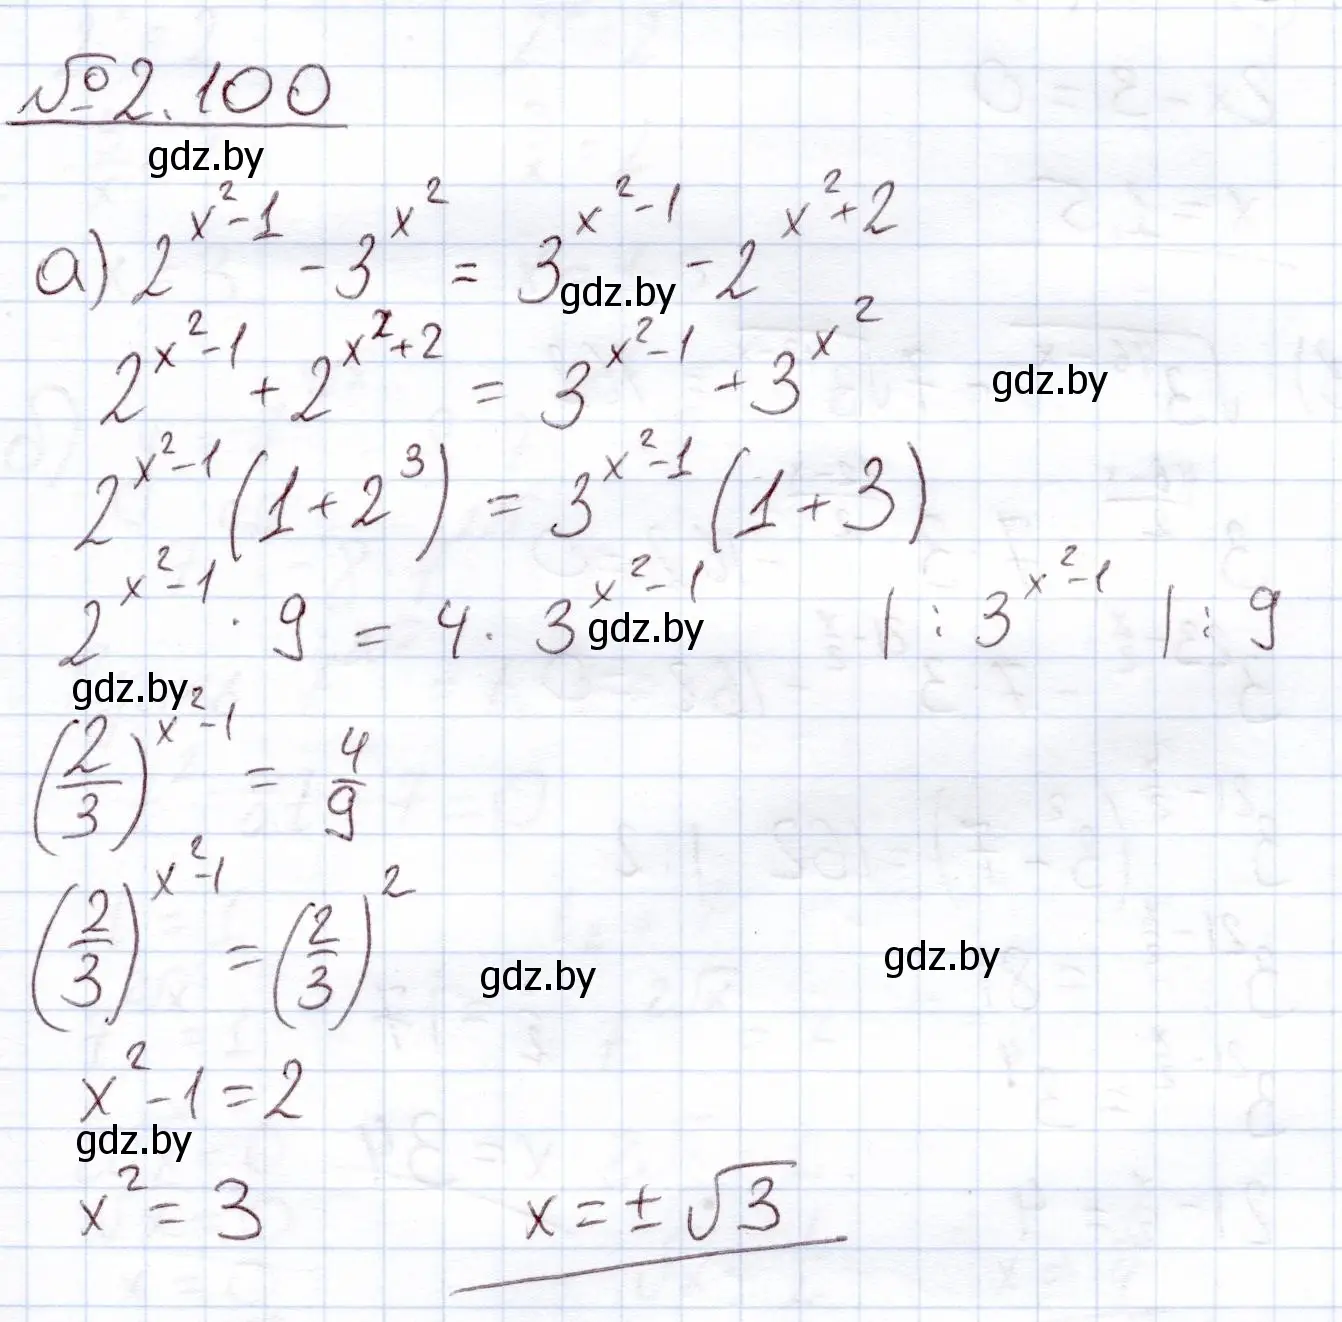 №2.100
gdz.by
а) 2^{x²-1} - 3^{x²} = 3^{x²-1} - 2^{x²+2}
gdz.by
2^{x²-1} + 2^{x²+2} = 3^{x²-1} + 3^{x²}
gdz.by
2^{x²-1} (1+2³) = 3^{x²-1} (1+3)
2^{x²-1} · 9 = 4 · 3^{x²-1} |: 3^{x²-1} |: 9
gdz.by
gdz.by
(2/3)^{x²-1} = 4/9
(2/3)^{x²-1} = (2/3)²
gdz.by
gdz.by
x² - 1 = 2
gdz.by
x² = 3 x = ± √3